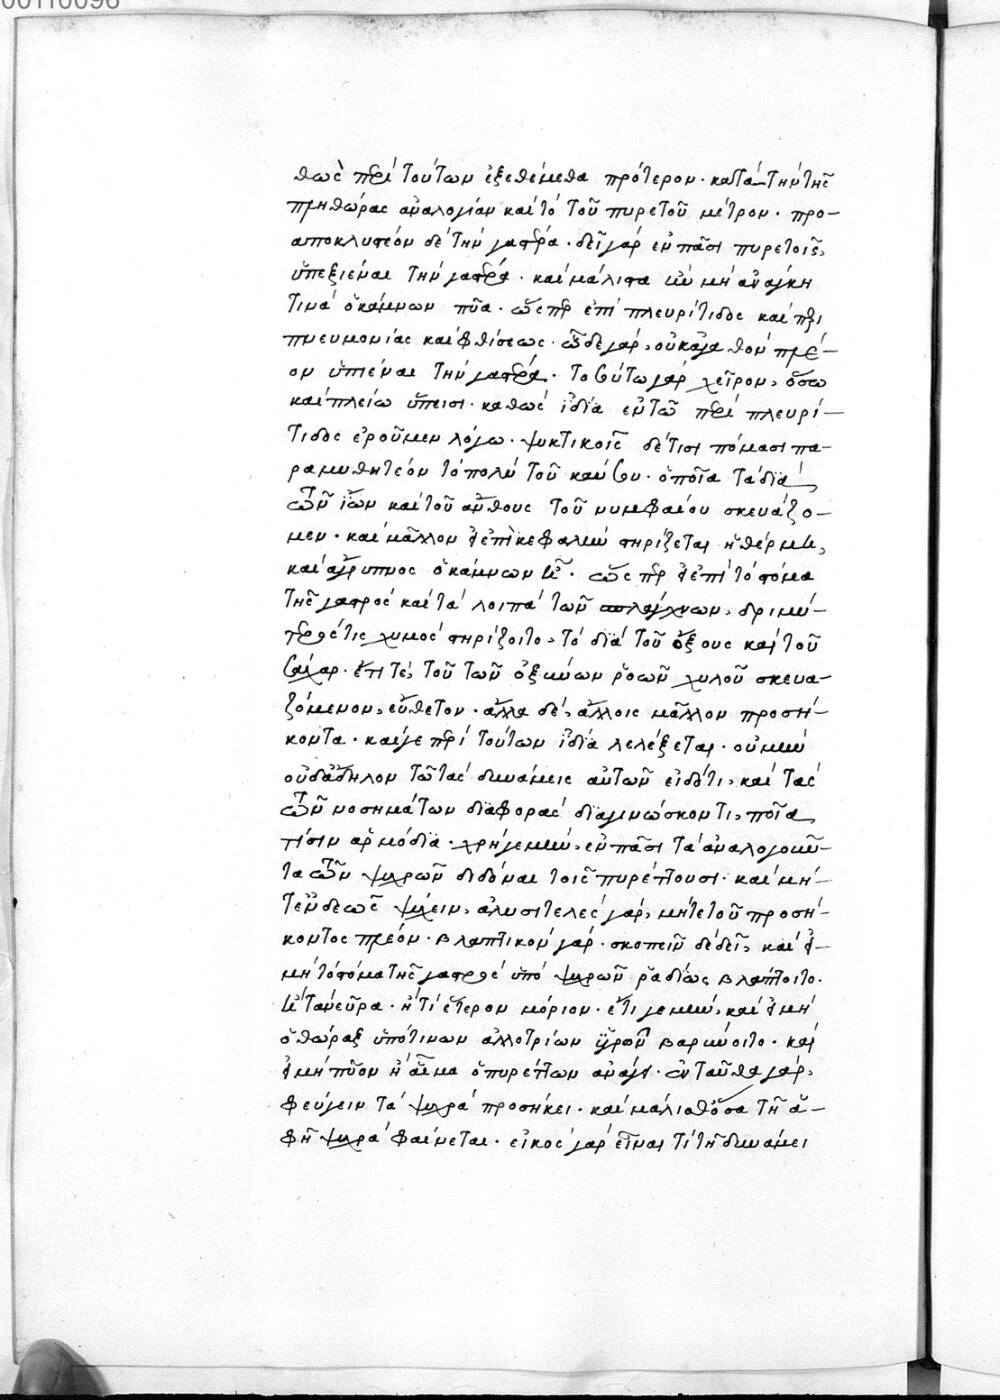 00110096
θως περὶ τούτων ἐξεθέμεθα πρότερον· κατὰ τὴν τῆς
πληθώρας ἀναλογίαν καὶ τὸ τοῦ πυρετοῦ μέτρον· προ-
αποκλυστέον δὲ τὴν γαστέρα· δεῖ γὰρ ἐν πᾶσι πυρετοῖς,
ὑπεξιέναι τὴν γαστέρα· καὶ μάλιστα μὴ ἀνάγκη
τινὰ ὁ κάμνων· ὥσπερ ἐπὶ πλευρίτιδος καὶ περι
πνευμονίας καὶ φθίσεως· ὧδε γὰρ, οὐκ ἀγαθὸν πλέ-
ον ὑπιέναι τὴν γαστέρα· τοσούτω γὰρ χεῖρον, ὅσω
καὶ πλείω ὕπεισι· καθὼς ἰδία ἐν τῶ περὶ πλευρί-
τιδος ἐροῦμεν λόγω· ψυκτικοῖς δέ τισι πόμασι πα-
ραμυθητέον τὸ πολὺ τοῦ καύσου· ὁποῖα τὰ διὰ
τῶν ἴων καὶ τοῦ ἄνθους τοῦ νυμφαίου σκευάζο-
μεν· καὶ μᾶλλον εἰ ἐπὶ κεφαλὴν στηρίζεται ἡ θέρμη,
καὶ ἄγρυπνος ὁ κάμνων ᾖ· ὥσπερ εἰ ἐπὶ τὸ στόμα
τῆς γαστρὸς καὶ τὰ λοιπὰ τῶν σπλάγχνων, δριμύ-
τερός τις χυμὸς στηρίζοιτο, τὸ διὰ τοῦ ὄξους καὶ τοῦ
σάχαρ· ἔτι τὲ, τοῦ τῶν ὀξινων ῥοῶν χυλοῦ σκευα-
ζόμενον, εὔθετον· ἄλλα δὲ, ἄλλοις μᾶλλον προσή-
κοντα· καί γε περὶ τούτων ἰδία λελέξεται· οὐ μὴν
οὐδ' ἄδηλον τῶ τὰς δυνάμεις αὐτῶν εἰδότι, καὶ τὰς
τῶν νοσημάτων διαφορὰς διαγινώσκοντι, ποῖα
τίσιν ἁρμόδια· χρή γε μὴν, ἐν πᾶσι τὰ ἀναλογοῦν-
τα τῶν ψυχρῶν διδόναι τοῖς πυρέττουσι· καὶ μή-
τ' ἐνδεῶς ψύχειν, ἀλυσιτελὲς γάρ, μήτε τοῦ προσή-
κοντος πλέον· βλαπτικὸν γάρ· σκοπεῖν δὲ δεῖ, καὶ εἰ
μὴ τὸ στόμα τῆς γαστρὸς ὑπὸ ψυχρῶν ῥαδίως βλάπτοιτο·
ἢ τὰ νεῦρα· ἤ τι ἕτερον μόριον· ἔτι γε μὴν, καὶ εἰ μὴ
ὁ θώραξ ὑπό τινων ἀλλοτρίων ὑγρῶν βαρύνοιτο· καὶ
εἰ μὴ πῦον ἢ αἷμα ὁ πυρέττων ἀνάγει· ἐνταῦθα γὰρ,
φεύγειν τὰ ψυχρὰ προσήκει· καὶ μάλισθ' ὅσα τῆ ἁ-
φῆ ψυχρὰ φαίνεται· εἰκὸς γὰρ εἶναι τι τῆ δυνάμει